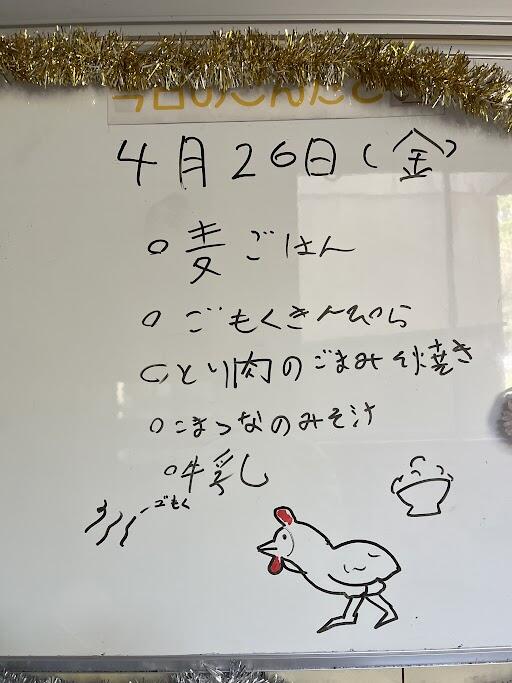 今日のこんだて
4月26日(金)
○麦ごはん
○ごもくきんぴら
○とり肉のごまみそ焼き
○こまつなのみそ汁
○牛乳
ごもく